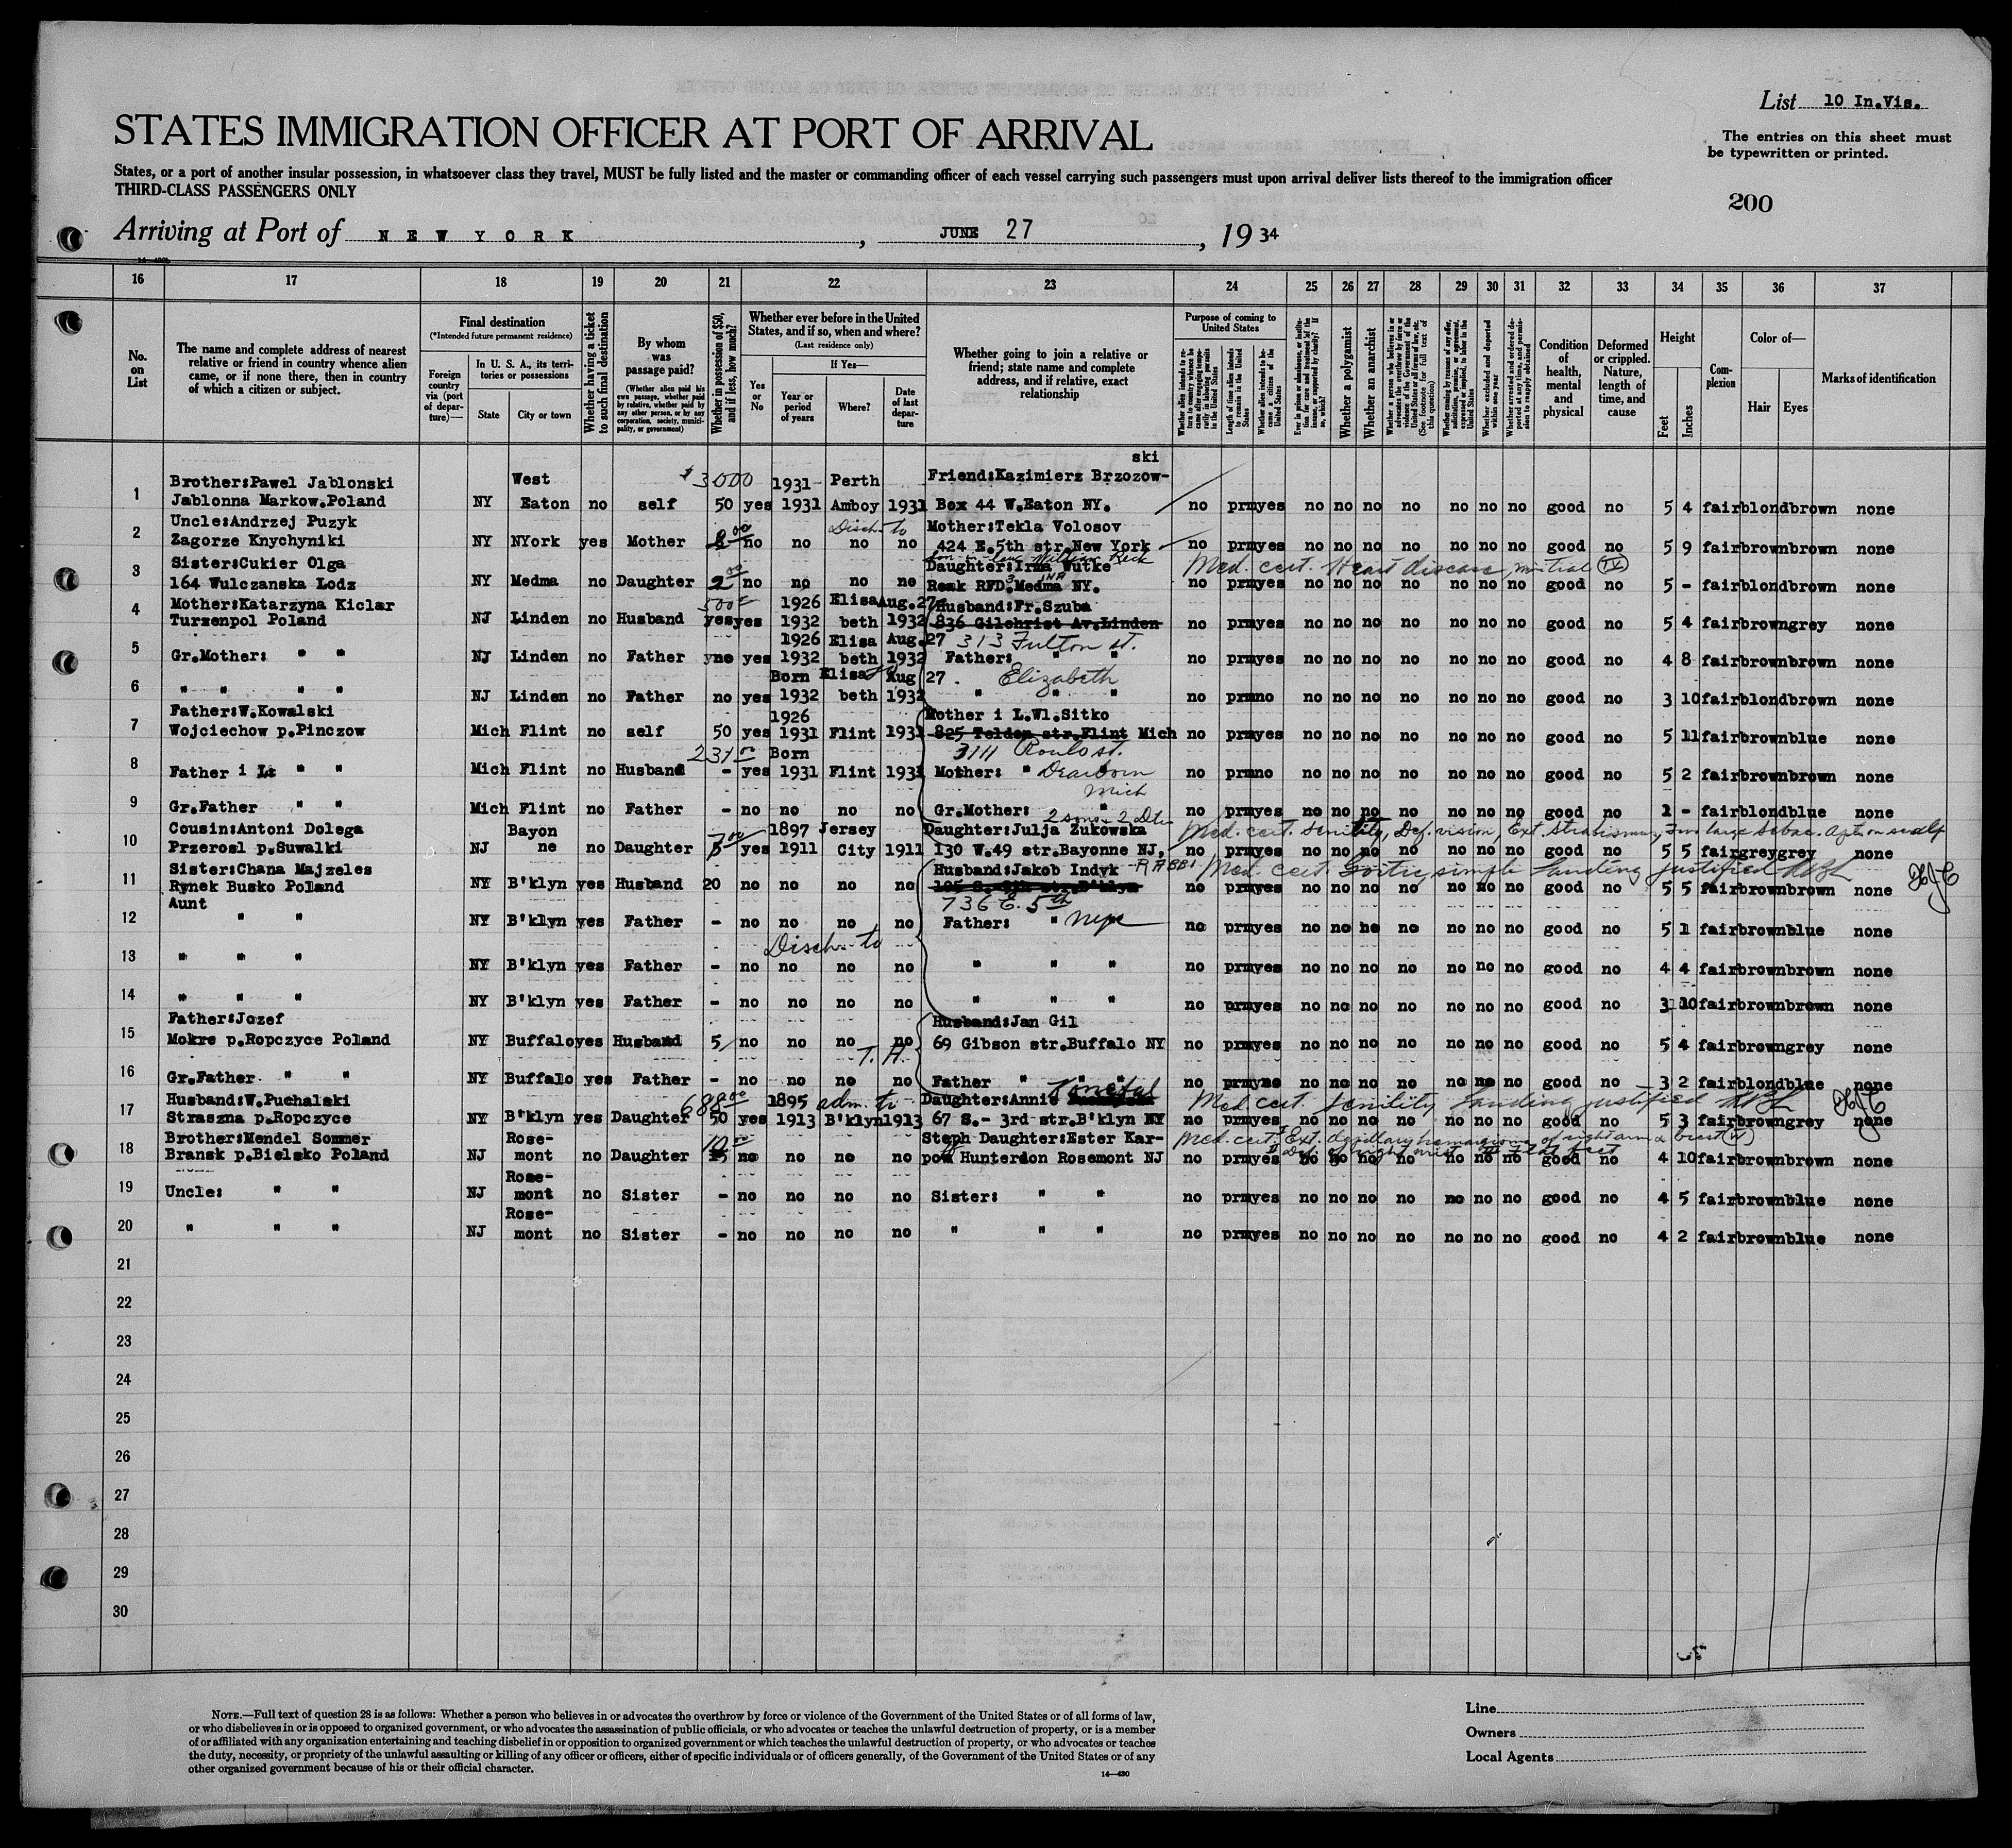 List 10 In.Vis.
STATES IMMIGRATION OFFICER AT PORT OF ARRIVAL
The entries on this sheet must
be typewritten or printed.
States, or a port of another insular possession, in whatsoever class they travel, MUST be fully listed and the master or commanding officer of each vessel carrying such passengers must upon arrival deliver lists thereof to the immigration officer
THIRD-CLASS PASSENGERS ONLY
200
Arriving at Port of NEW YORK, JUNE 27, 1934
16 17 18 19 20 21 22 23 24 25 26 27 28 29 30 31 32 33 34 35 36 37
No. on List
The name and complete address of nearest relative or friend in country whence alien came, or if none there, then in country of which a citizen or subject.
Final destination
(*Intended future permanent residence)
Foreign country via (port of departure)—
In U. S. A., its territories or possessions
State
City or town
Whether having a ticket to such final destination
By whom was passage paid?
(Whether alien paid his own passage, whether paid by relative, whether paid by any other person, or by any corporation, society, municipality, or government)
Whether in possession of $50, and if less, how much?
Whether ever before in the United States, and if so, when and where?
(Last residence only)
Yes or No
If Yes—
Year or period of years
Where?
Date of last departure
Whether going to join a relative or friend; state name and complete address, and if relative, exact relationship
Purpose of coming to United States
Length of time alien intends to remain in the United States
Whether alien intends to become a citizen of the United States
Whether a polygamist
Whether an anarchist
Condition of health, mental and physical
Deformed or crippled. Nature, length of time, and cause
Height
Feet
Inches
Complexion
Color of—
Hair
Eyes
Marks of identification
ski
West $3000 Friend:Kazimierz Brzozow-
1 Brother:Pawel Jablonski 1931 Perth
Jablonna Markow.Poland NY Eaton no self 50 yes 1931 Amboy 1931 Box 44 W.Eaton NY. no prm yes no no no no no no no good no 5 4 fair blond brown none
2 Uncle:Andrzej Puzyk Disch. to Mother:Tekla Volosov
Zagorze Knychyniki NY NYork yes Mother no no no no 424 E.5th str.New York no prm yes no no no no no no no good no 5 9 fair brown brown none
3 Sister:Cukier Olga Daughter:Irma Wutke Med. cert. Heart disease, mitral (IV)
164 Wulczanska Lodz NY Medma no Daughter 2 00 no no no no Reak RFD.3 Medma NY. no prm yes no no no no no no no good no 5 - fair blond brown none
4 Mother:Katarzyna Kiclar 1926 Elisa Aug.27 Husband:Fr.Szuba
Turzenpol Poland NJ Linden no Husband yes yes 1932 beth 1932 836 Gilchrist Av.Linden no prm yes no no no no no no no good no 5 4 fair brown grey none
1926 Elisa Aug.27 313 Fulton st.
5 Gr.Mother: " " NJ Linden no Father no yes 1932 beth 1932 Father: " no prm yes no no no no no no no good no 4 8 fair brown brown none
Born Elisa Aug 27 Elizabeth
6 " " " " NJ Linden no Father no yes 1932 beth 1932 " " " no prm no no no no no no no no good no 3 10 fair blond brown none
7 Father:W.Kowalski 1926 Mother i L.Wl.Sitko
Wojciechow p.Pinczow Mich Flint no self 50 yes 1931 Flint 1931 825 Teldon str.Flint Mich no prm yes no no no no no no no good no 5 11 fair brown blue none
231 00 Born 3111 Roulo st.
8 Father i Lt " " Mich Flint no Husband - yes 1931 Flint 1931 Mother: " Dearborn no prm no no no no no no no no good no 5 2 fair brown brown none
Mich
9 Gr.Father " " Mich Flint no Father - no no no no Gr.Mother: " no prm yes no no no no no no no good no 1 - fair blond blue none
2 sons 2 Dtrs
10 Cousin:Antoni Dolega Bayon 7 00 1897 Jersey Daughter:Julja Zukowska Med. cert. Senility, Def. vision, Ext. Strabismus, Two large Sebac. cyst on scalp
Przerosl p.Suwalki NJ ne no Daughter yes 1911 City 1911 130 W.49 str.Bayonne NJ. no prm yes no no no no no no no good no 5 5 fair grey grey none
11 Sister:Chana Majzeles Husband:Jakob Indyk -RABBI Med. cert. Goitre, simple Landing justified
Rynek Busko Poland NY B'klyn yes Husband 20 no no no no no prm yes no no no no no no no good no 5 5 fair brown brown none
Aunt 736 E. 5th
12 " " NY B'klyn yes Father - no no no no Father: " no prm yes no no no no no no no good no 5 1 fair brown blue none
Disch. to
13 " " " NY B'klyn yes Father - no no no no " " " no prm yes no no no no no no no good no 4 4 fair brown brown none
14 " " " NY B'klyn yes Father - no no no no " " " no prm yes no no no no no no no good no 3 10 fair brown brown none
15 Father:Jozef Husband:Jan Gil
Mokre p.Ropczyce Poland NY Buffalo yes Husband 5 no no no no 69 Gibson str.Buffalo NY no prm yes no no no no no no no good no 5 4 fair brown grey none
T. H.
16 Gr.Father " " NY Buffalo yes Father - no no no no Father " " " no prm no no no no no no no good no 3 2 fair blond blue none
17 Husband:W.Puchalski 688 00 1895 adm. to Daughter:Annie Med cert. Senility Landing justified
Straszna p.Ropczyce NY B'klyn yes Daughter 50 yes 1913 B'klyn 1913 67 S.- 3rd str.B'klyn NY no prm yes no no no no no no no good no 5 3 fair brown grey none
18 Brother:Mendel Sommer Rose- 10 00 Steph Daughter:Ester Kar- Med. cert. Ext. capillary hemangioma of right arm & breast (IV)
Bransk p.Bielsko Poland NJ mont no Daughter no no no no pow Hunterdon Rosemont NJ no prm yes no no no no no no no good no 4 10 fair brown brown none
Rose-
19 Uncle: " " NJ mont no Sister - no no no no Sister: " " no prm yes no no no no no no no good no 4 5 fair brown blue none
Rose-
20 " " " NJ mont no Sister - no no no no " " " no prm yes no no no no no no no good no 4 2 fair brown blue none
21
22
23
24
25
26
27
28
29
30
NOTE.—Full text of question 28 is as follows: Whether a person who believes in or advocates the overthrow by force or violence of the Government of the United States or of all forms of law,
or who disbelieves in or is opposed to organized government, or who advocates the assassination of public officials, or who advocates or teaches the unlawful destruction of property, or is a member
of or affiliated with any organization entertaining and teaching disbelief in or opposition to organized government or which teaches the unlawful destruction of property, or who advocates or teaches
the duty, necessity, or propriety of the unlawful assaulting or killing of any officer or officers, either of specific individuals or of officers generally, of the Government of the United States or of any
other organized government because of his or their official character.
14—430
Line
Owners
Local Agents